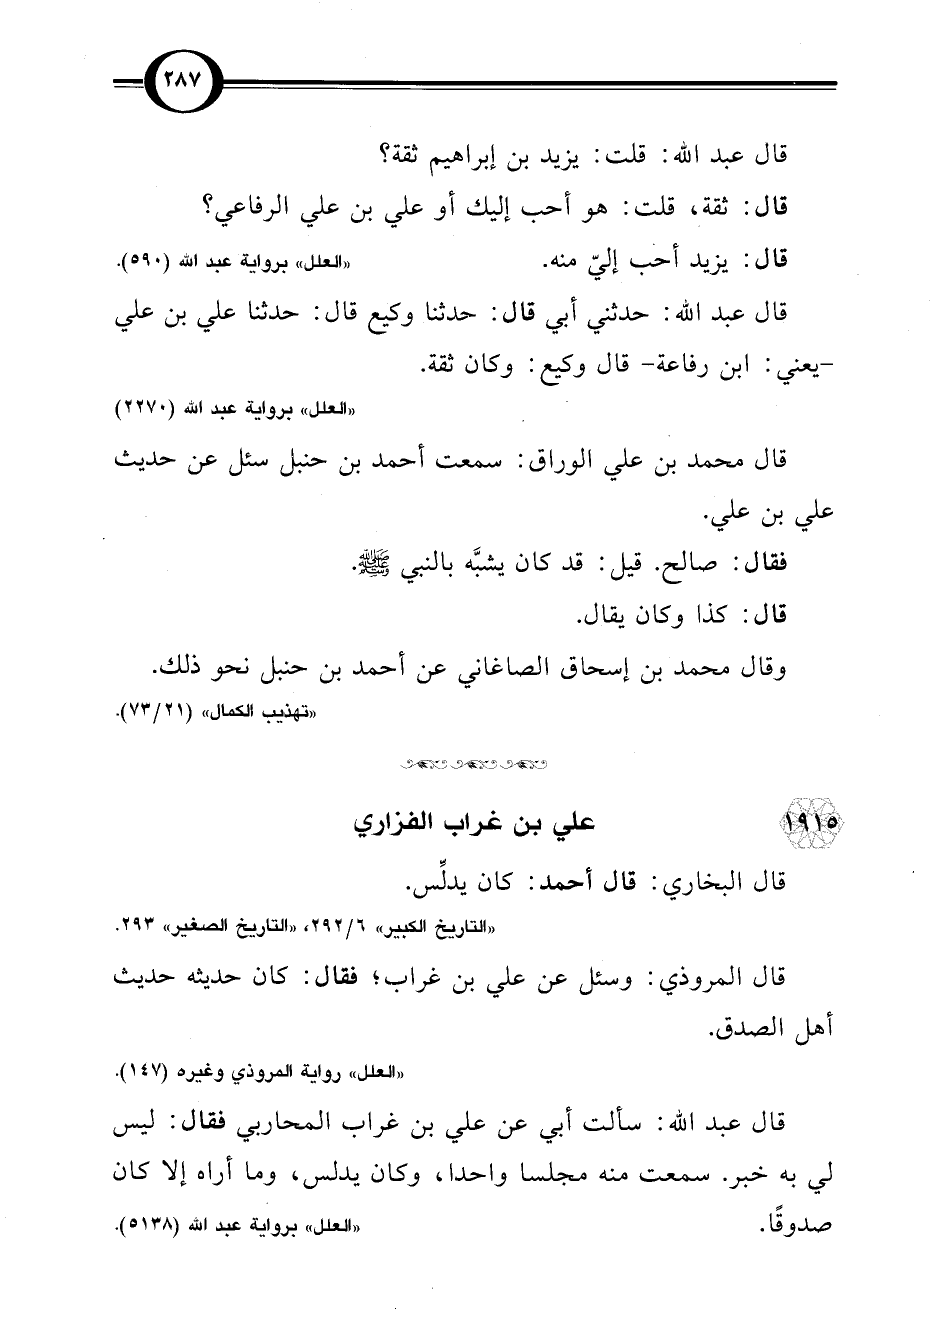 ٢٨٧
قال عبد الله: قلت: يزيد بن إبراهيم ثقة؟
قال: ثقة، قلت: هو أحب إليك أو علي بن علي الرفاعي؟
قال: يزيد أحب إليّ منه. «العلل» برواية عبد الله (٥٩٠).
قال عبد الله: حدثني أبي قال: حدثنا وكيع قال: حدثنا علي بن علي
-يعني: ابن رفاعة- قال وكيع: وكان ثقة.
«العلل» برواية عبد الله (٢٢٧٠)
قال محمد بن علي الوراق: سمعت أحمد بن حنبل سئل عن حديث
علي بن علي.
فقال: صالح. قيل: قد كان يشبَّه بالنبي ﷺ.
قال: كذا وكان يقال.
وقال محمد بن إسحاق الصاغاني عن أحمد بن حنبل نحو ذلك.
«تهذيب الكمال» (٢١/٧٣).
١٩١٥ علي بن غراب الفزاري
قال البخاري: قال أحمد: كان يدلِّس.
«التاريخ الكبير» ٦/٢٩٢، «التاريخ الصغير» ٢٩٣.
قال المروذي: وسئل عن علي بن غراب؛ فقال: كان حديثه حديث
أهل الصدق.
«العلل» رواية المروذي وغيره (١٤٧).
قال عبد الله: سألت أبي عن علي بن غراب المحاربي فقال: ليس
لي به خبر. سمعت منه مجلسا واحدا، وكان يدلس، وما أراه إلا كان
صدوقًا. «العلل» برواية عبد الله (٥١٣٨).